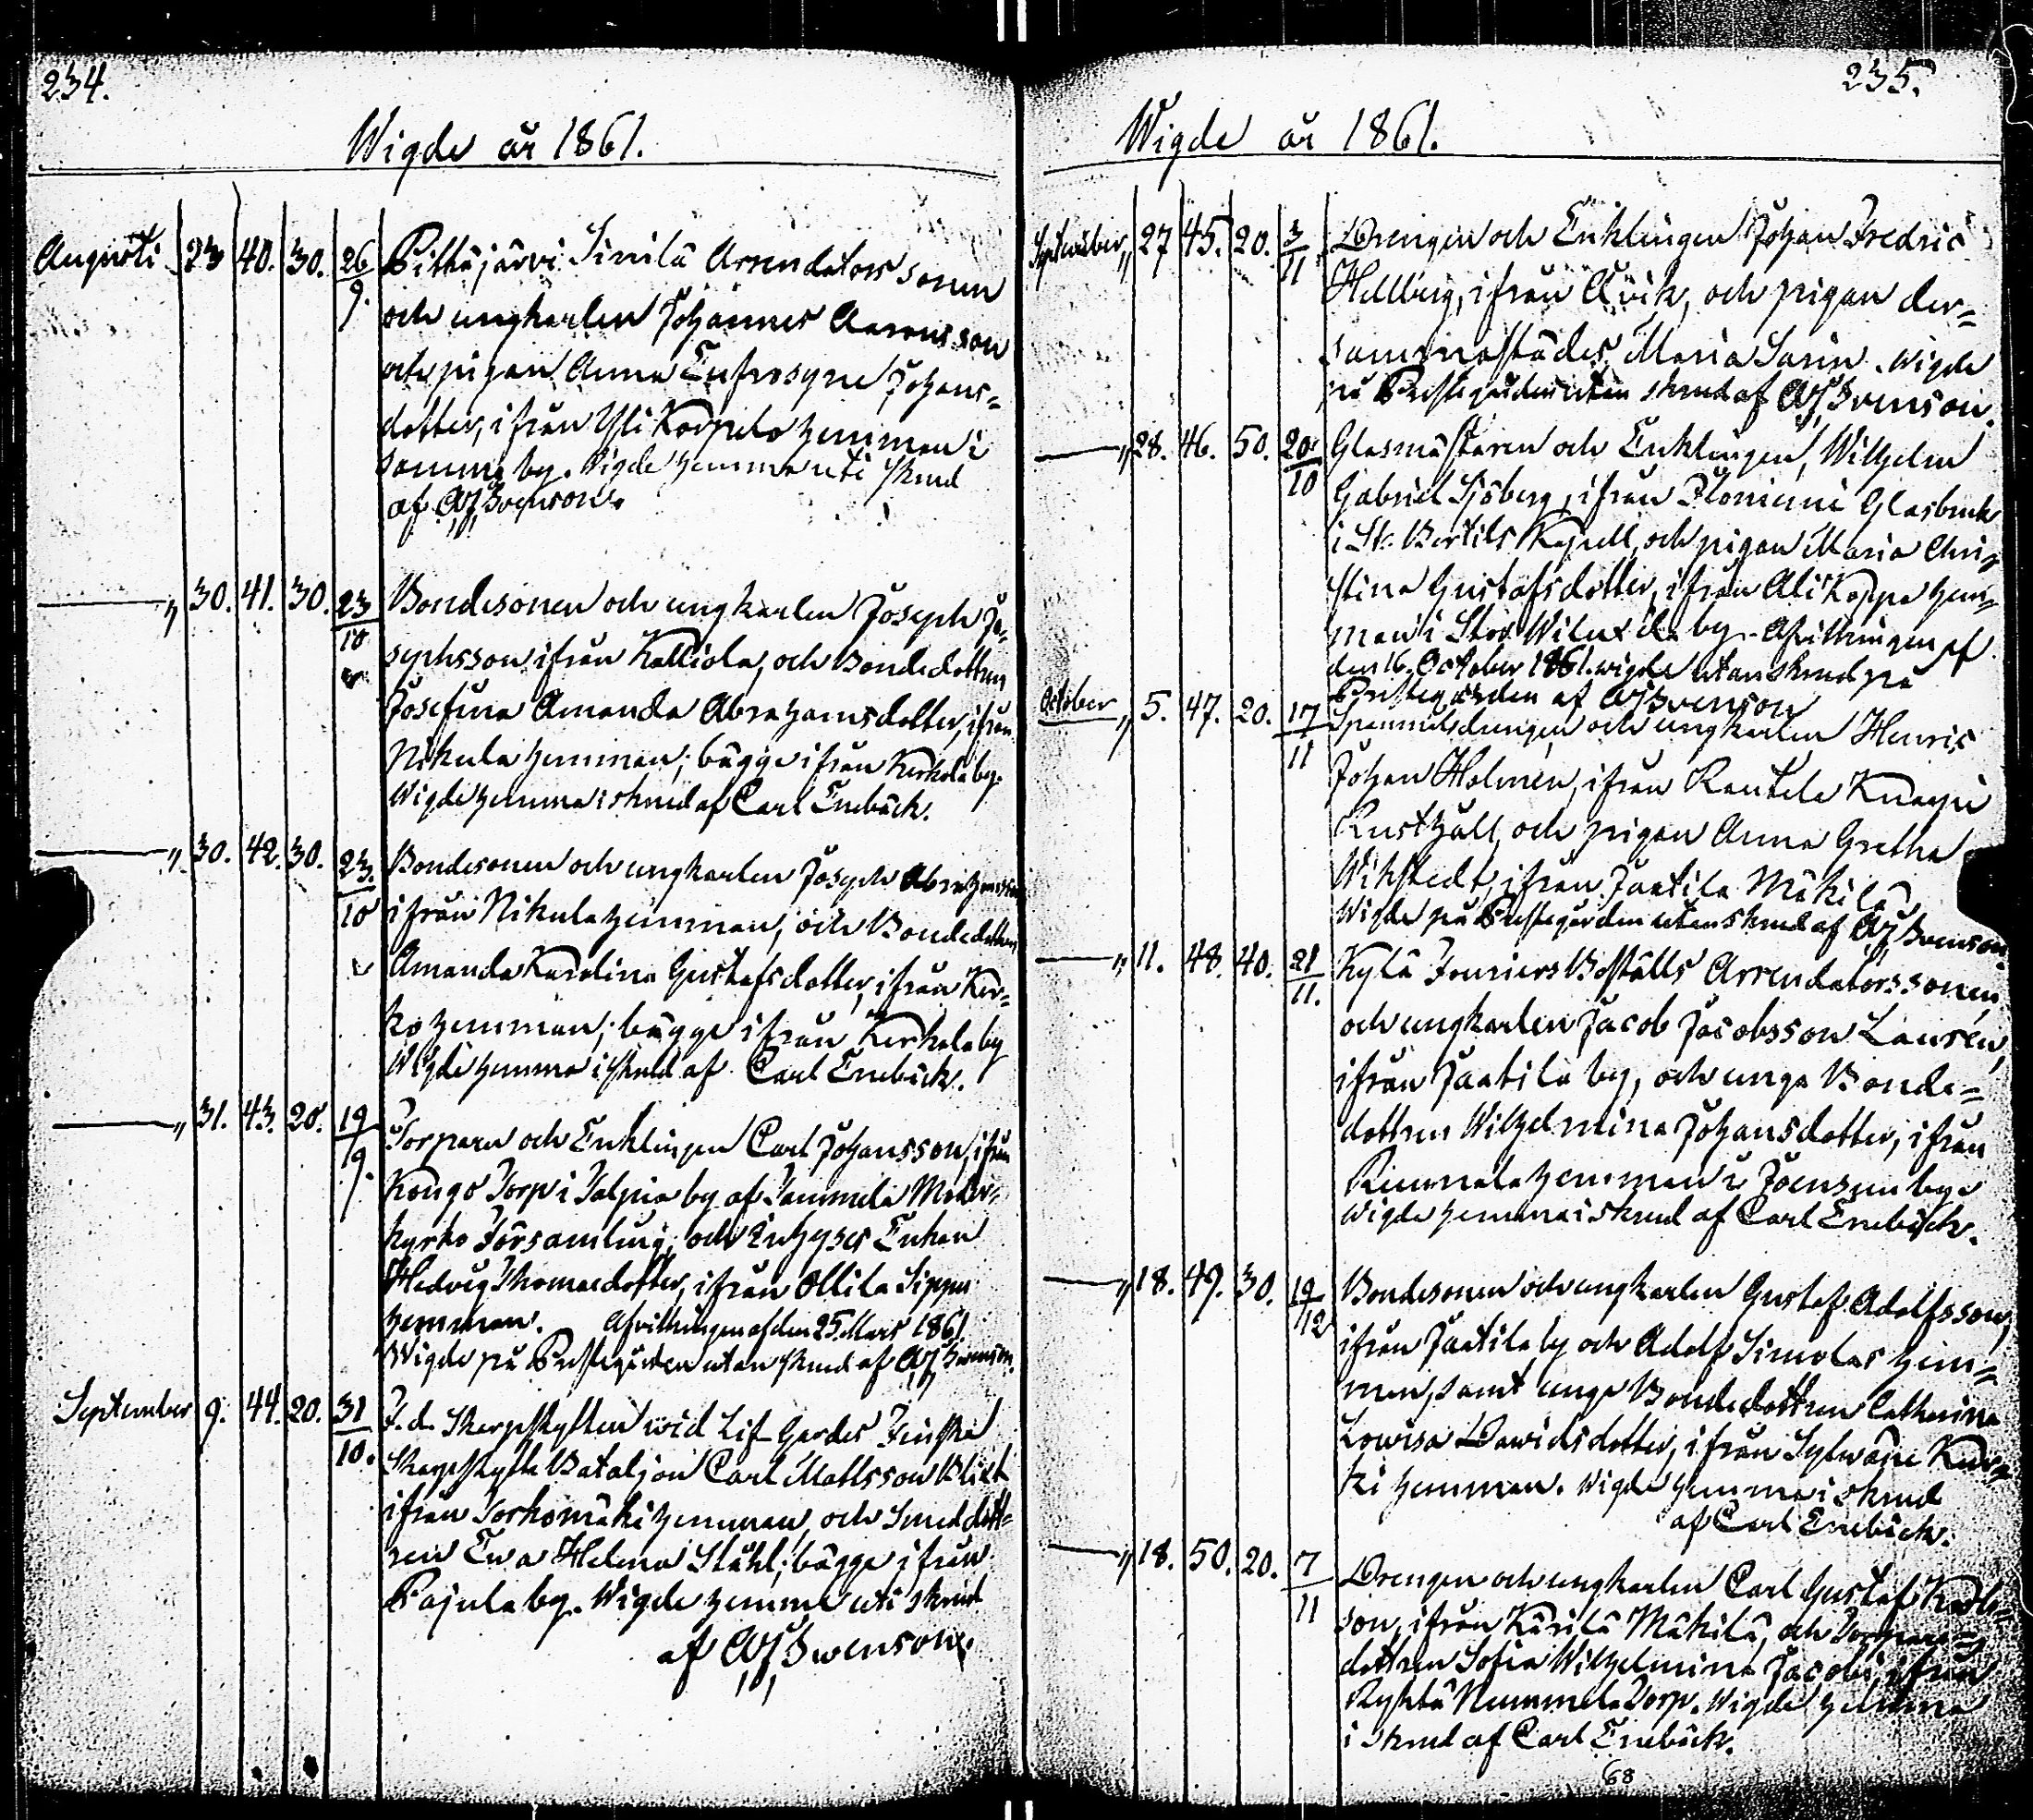 234.
Wigde år 1861.
Augusti 23 40. 30. 26/9. Pitkäjärvi Simila Arrendators sonen
och ungkarlen Johannes Aaronsson
och pigan Anna Eufrosyne Johans-
dotter, ifrån Yli Korpela hemman i
samma by. Wigde hemma uti skrud
af Swenson.
" 30. 41. 30. 23/10 Bondesonen och ungkarlen Joseph Jo-
sephsson ifrån Kalliola, och Bondedottren
Josefina Amanda Abrahamsdotter, ifrån
Nikula hemman; bägge ifrån Kerkola by.
Wigde hemma i skrud af Carl Enebäck.
" 30. 42. 30. 23./10 Bondesonen och ungkarlen Joseph Abrahamsson
ifrån Nikula hemman, och Bondedottren
Amanda Karolina Gustafsdotter, ifrån Ker-
ko hemman; bägge ifrån Kerkola by
Wigde hemma i skrud af Carl Enebäck.
" 31. 43. 20. 19/9. Torparen och Enklingen Carl Johansson, ifrån
Kongo Torp i Talpia by af Tammela Moder-
kyrko Församling, och Inhyses Enkan
Hedvig Thomasdotter, ifrån Ollila Sippu
hemman. Afvittringen af den 25. Mars 1861.
Wigde på Prestegården utan skrud af Swenson.
September 9. 44. 20. 31/10. F.d. Skarpskytten wid Lif Gardes Finska
Skarpskytte Bataljon Carl Mattsson Blixt
ifrån Torkomäki hemman, och Smeddott-
ren Ewa Helena Ståhl; bägge ifrån
Pajula by. Wigde hemma uti skrud
af Swenson.
235.
Wigde år 1861.
September " 27 45. 20. 3/11 Drengen och Enklingen Johan Fredric
Hellberg, ifrån Åvik, och pigan der-
sammastädes Maria Sarin. Wigde
på Prestegården utan skrud af Swenson.
" 28. 46. 50. 20/10 Glasmästaren och Enklingen, Wilhelm
Gabriel Sjöberg, ifrån Glasbruk
i St. Bertils Kapell, och pigan Maria Chri-
stina Gustafsdotter, ifrån Ali Koppa hem-
man i Stor Wilux ila by. Afvittringen af
den 16. October 1861. wigde utan skrud på
Prestegården af Swenson
October " 5. 47. 20. 17/11 Spannmålsdrengen och ungkarlen Henric
Johan Holmén, ifrån Rautela Knaapi
Rusthåll, och pigan Anna Gretha
Wikstedt, ifrån Jaatila Mäkilä
Wigde på Prestegården utan skrud af Swenson.
" 11. 48. 40. 21/11. Kylä Fouriers Boställs Arrendatorssonen
och ungkarlen Jacob Jacobsson Laurén,
ifrån Jaatila by, och unga Bonde-
dottren Wilhelmina Johansdotter, ifrån
hemman i Joensuu by.
Wigde hemma i skrud af Carl Enebäck.
" 18. 49. 30. 19/12 Bondesonen och ungkarlen Gustaf Adolfsson,
ifrån Jaatila by och Adolf Simolas hem-
man, samt unga Bondedottren Catharina
Lowisa Dawidsdotter, ifrån Sylwäne Kur-
ki hemman. Wigde hemma i skrud
af Carl Enebäck.
" 18. 50. 20. 7/11 Drengen och ungkarlen Carl Gustaf Karls-
son, ifrån Kärilä Mäkilä, och Torpare-
dottren Sofia Wilhelmina Jacobs, ifrån
Nummela Torp. Wigde hemma
i skrud af Carl Enebäck.
68